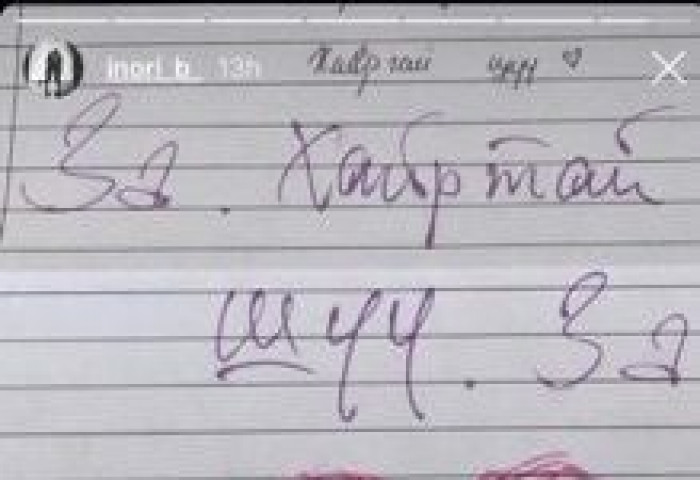 inori_b_ 13h Хайртай шүү ♡
За. Хайртай
шүү. За